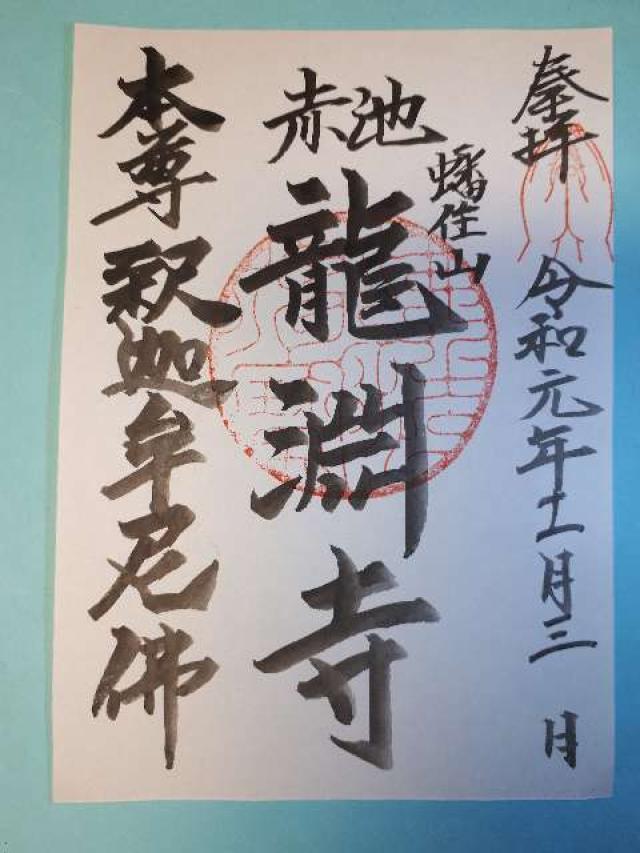 奉拝
令和元年十一月三日
蟠住山
赤池
龍淵寺
本尊
釈迦牟尼佛